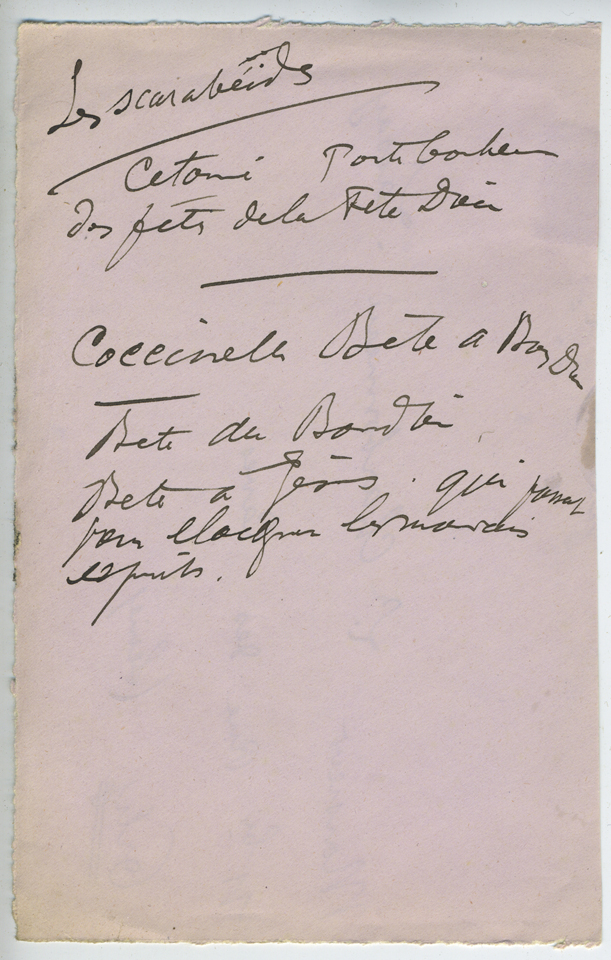 Les scarabéides
Cetoni Porte bonheur
des fêts de la Fete Dieu
Coccinelle Bête a Bon Dieu
Bete du Bon Dieu
Bete a Jésus. qui passent
pour éloigner les mauvais
esprits.